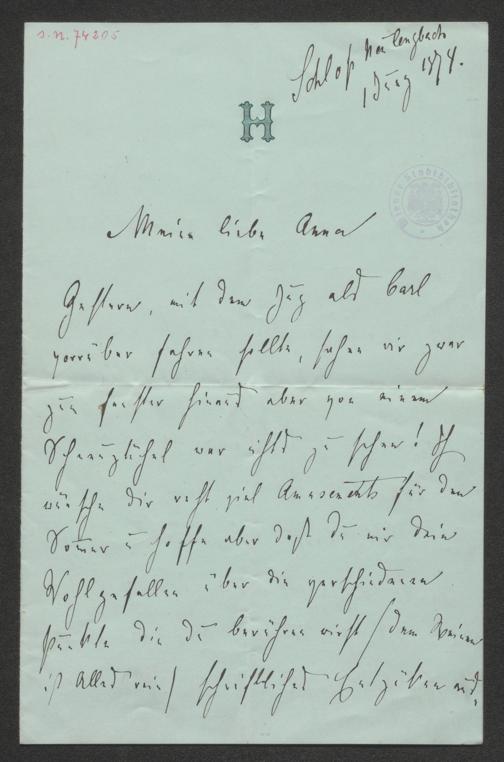 S.N. 74205
Schloß Neulengbach
1 Juny 1874.
H
Meine liebe Anna
Gestern, mit dem Zug als Carl
vorrüber fahren sollte, sahen wir zwar
zum Fenster hinaus aber von einem
war nichts zu sehen! Ich
wünsche dir recht viel Amusements für den
Sommer u hoffe aber daß du mir dein
Wohlgefallen über die verschiedenen
Punkte die du berühren wirst (dem Reinen
ist Alles rein) schriftliches Entzüken